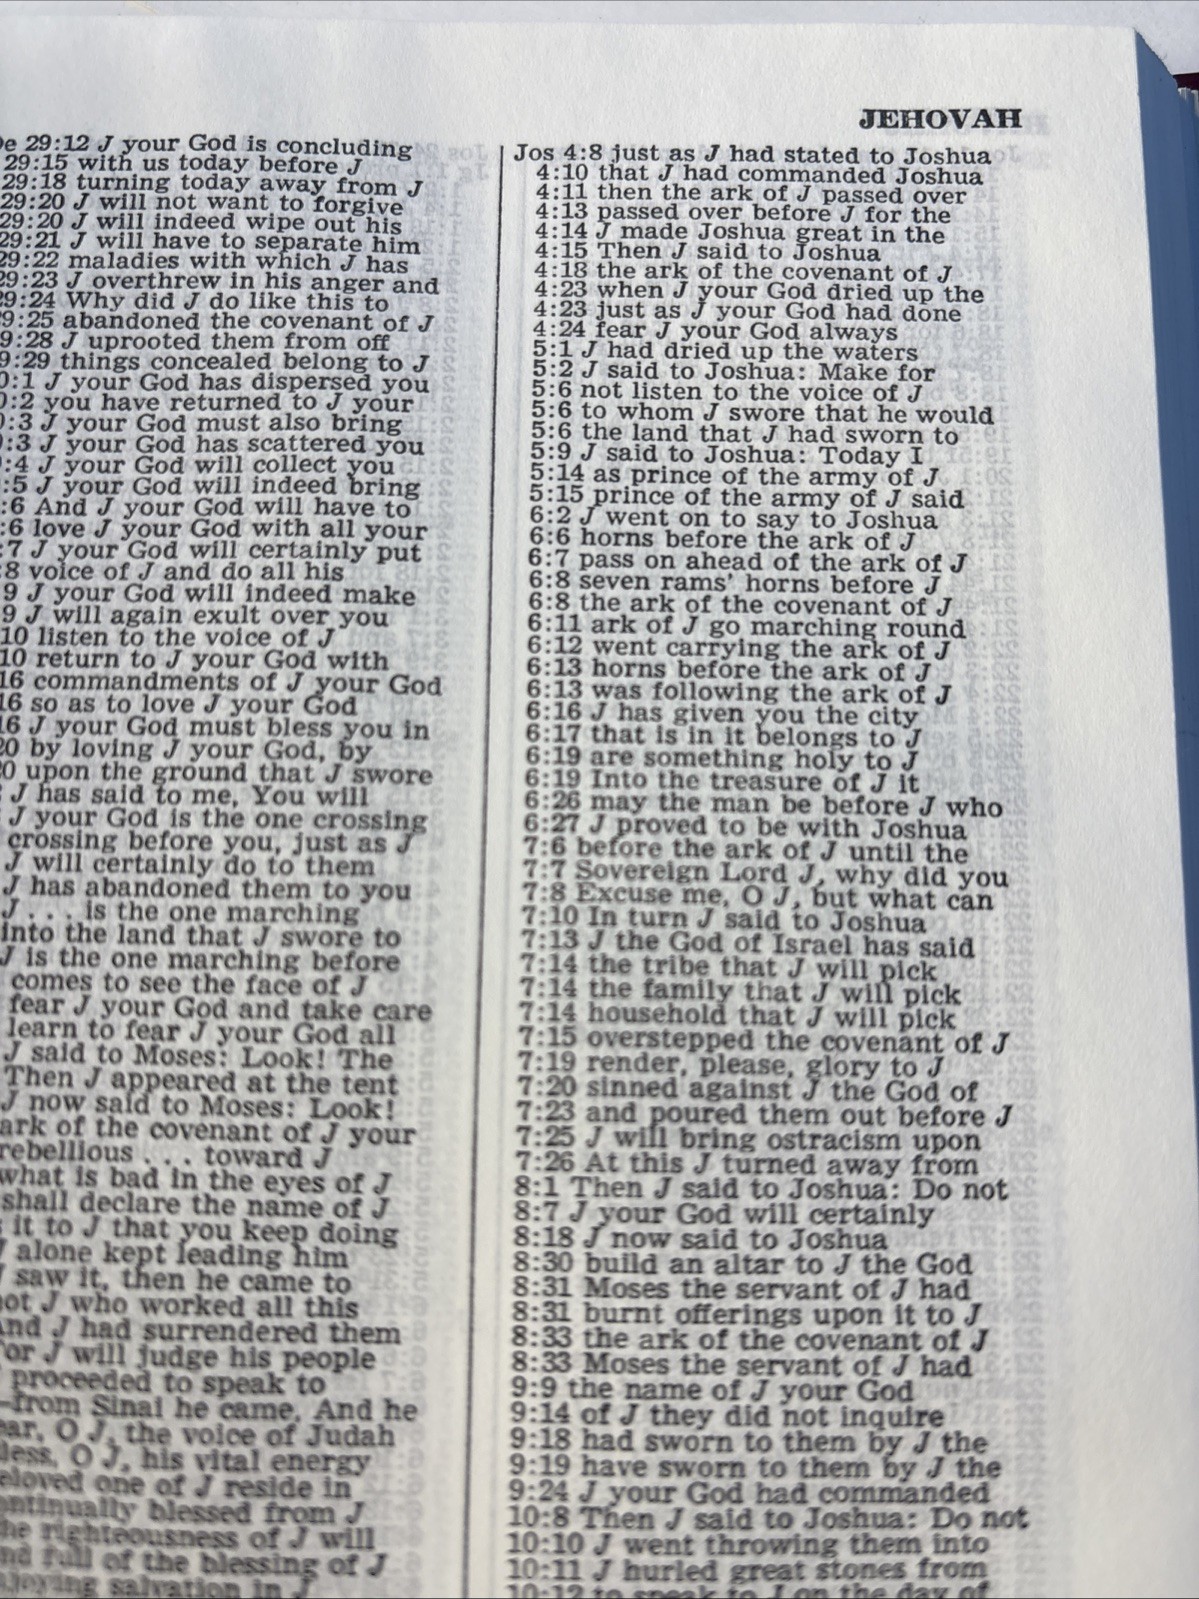 JEHOVAH
29:12 J your God is concluding
29:15 with us today before J
29:18 turning today away from J
29:20 J will not want to forgive
29:20 J will indeed wipe out his
29:21 J will have to separate him
29:22 maladies with which J has
29:23 J overthrew in his anger and
29:24 Why did J do like this to
9:25 abandoned the covenant of J
9:28 J uprooted them from off
9:29 things concealed belong to J
:1 J your God has dispersed you
:2 you have returned to J your
:3 J your God must also bring
:3 J your God has scattered you
:4 J your God will collect you
:5 J your God will indeed bring
:6 And J your God will have to
:6 love J your God with all your
:7 J your God will certainly put
8 voice of J and do all his
9 J your God will indeed make
9 J will again exult over you
10 listen to the voice of J
10 return to J your God with
16 commandments of J your God
16 so as to love J your God
16 J your God must bless you in
20 by loving J your God, by
0 upon the ground that J swore
J has said to me, You will
J your God is the one crossing
crossing before you, just as J
J will certainly do to them
J has abandoned them to you
J . . . is the one marching
into the land that J swore to
J is the one marching before
comes to see the face of J
fear J your God and take care
learn to fear J your God all
J said to Moses: Look! The
Then J appeared at the tent
J now said to Moses: Look!
ark of the covenant of J your
rebellious . . . toward J
what is bad in the eyes of J
shall declare the name of J
it to J that you keep doing
alone kept leading him
saw it, then he came to
J who worked all this
J had surrendered them
J will judge his people
proceeded to speak to
—from Sinai he came, And he
O J, the voice of Judah
O J, his vital energy
one of J reside in
blessed from J
righteousness of J will
full of the blessing of J
salvation in J
Jos 4:8 just as J had stated to Joshua
4:10 that J had commanded Joshua
4:11 then the ark of J passed over
4:13 passed over before J for the
4:14 J made Joshua great in the
4:15 Then J said to Joshua
4:18 the ark of the covenant of J
4:23 when J your God dried up the
4:23 just as J your God had done
4:24 fear J your God always
5:1 J had dried up the waters
5:2 J said to Joshua: Make for
5:6 not listen to the voice of J
5:6 to whom J swore that he would
5:6 the land that J had sworn to
5:9 J said to Joshua: Today I
5:14 as prince of the army of J
5:15 prince of the army of J said
6:2 J went on to say to Joshua
6:6 horns before the ark of J
6:7 pass on ahead of the ark of J
6:8 seven rams' horns before J
6:8 the ark of the covenant of J
6:11 ark of J go marching round
6:12 went carrying the ark of J
6:13 horns before the ark of J
6:13 was following the ark of J
6:16 J has given you the city
6:17 that is in it belongs to J
6:19 are something holy to J
6:19 Into the treasure of J it
6:26 may the man be before J who
6:27 J proved to be with Joshua
7:6 before the ark of J until the
7:7 Sovereign Lord J, why did you
7:8 Excuse me, O J, but what can
7:10 In turn J said to Joshua
7:13 J the God of Israel has said
7:14 the tribe that J will pick
7:14 the family that J will pick
7:14 household that J will pick
7:15 overstepped the covenant of J
7:19 render, please, glory to J
7:20 sinned against J the God of
7:23 and poured them out before J
7:25 J will bring ostracism upon
7:26 At this J turned away from
8:1 Then J said to Joshua: Do not
8:7 J your God will certainly
8:18 J now said to Joshua
8:30 build an altar to J the God
8:31 Moses the servant of J had
8:31 burnt offerings upon it to J
8:33 the ark of the covenant of J
8:33 Moses the servant of J had
9:9 the name of J your God
9:14 of J they did not inquire
9:18 had sworn to them by J the
9:19 have sworn to them by J the
9:24 J your God had commanded
10:8 Then J said to Joshua: Do not
10:10 J went throwing them into
10:11 J hurled great stones from
10:12 to speak to J on the day of